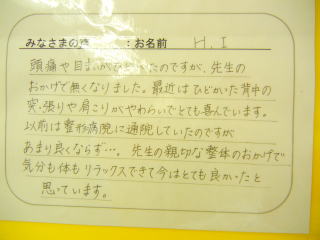 みなさまの声 :お名前 H.I
頭痛や目まいがひどかったのですが、先生の
おかげで無くなりました。最近はひどかった背中の
突っ張りや肩こりがやわらいでとても喜んでいます。
以前は整形病院に通院していたのですが
あまり良くならず…。先生の親切な整体のおかげで
気分も体もリラックスできて今はとても良かったと
思っています。